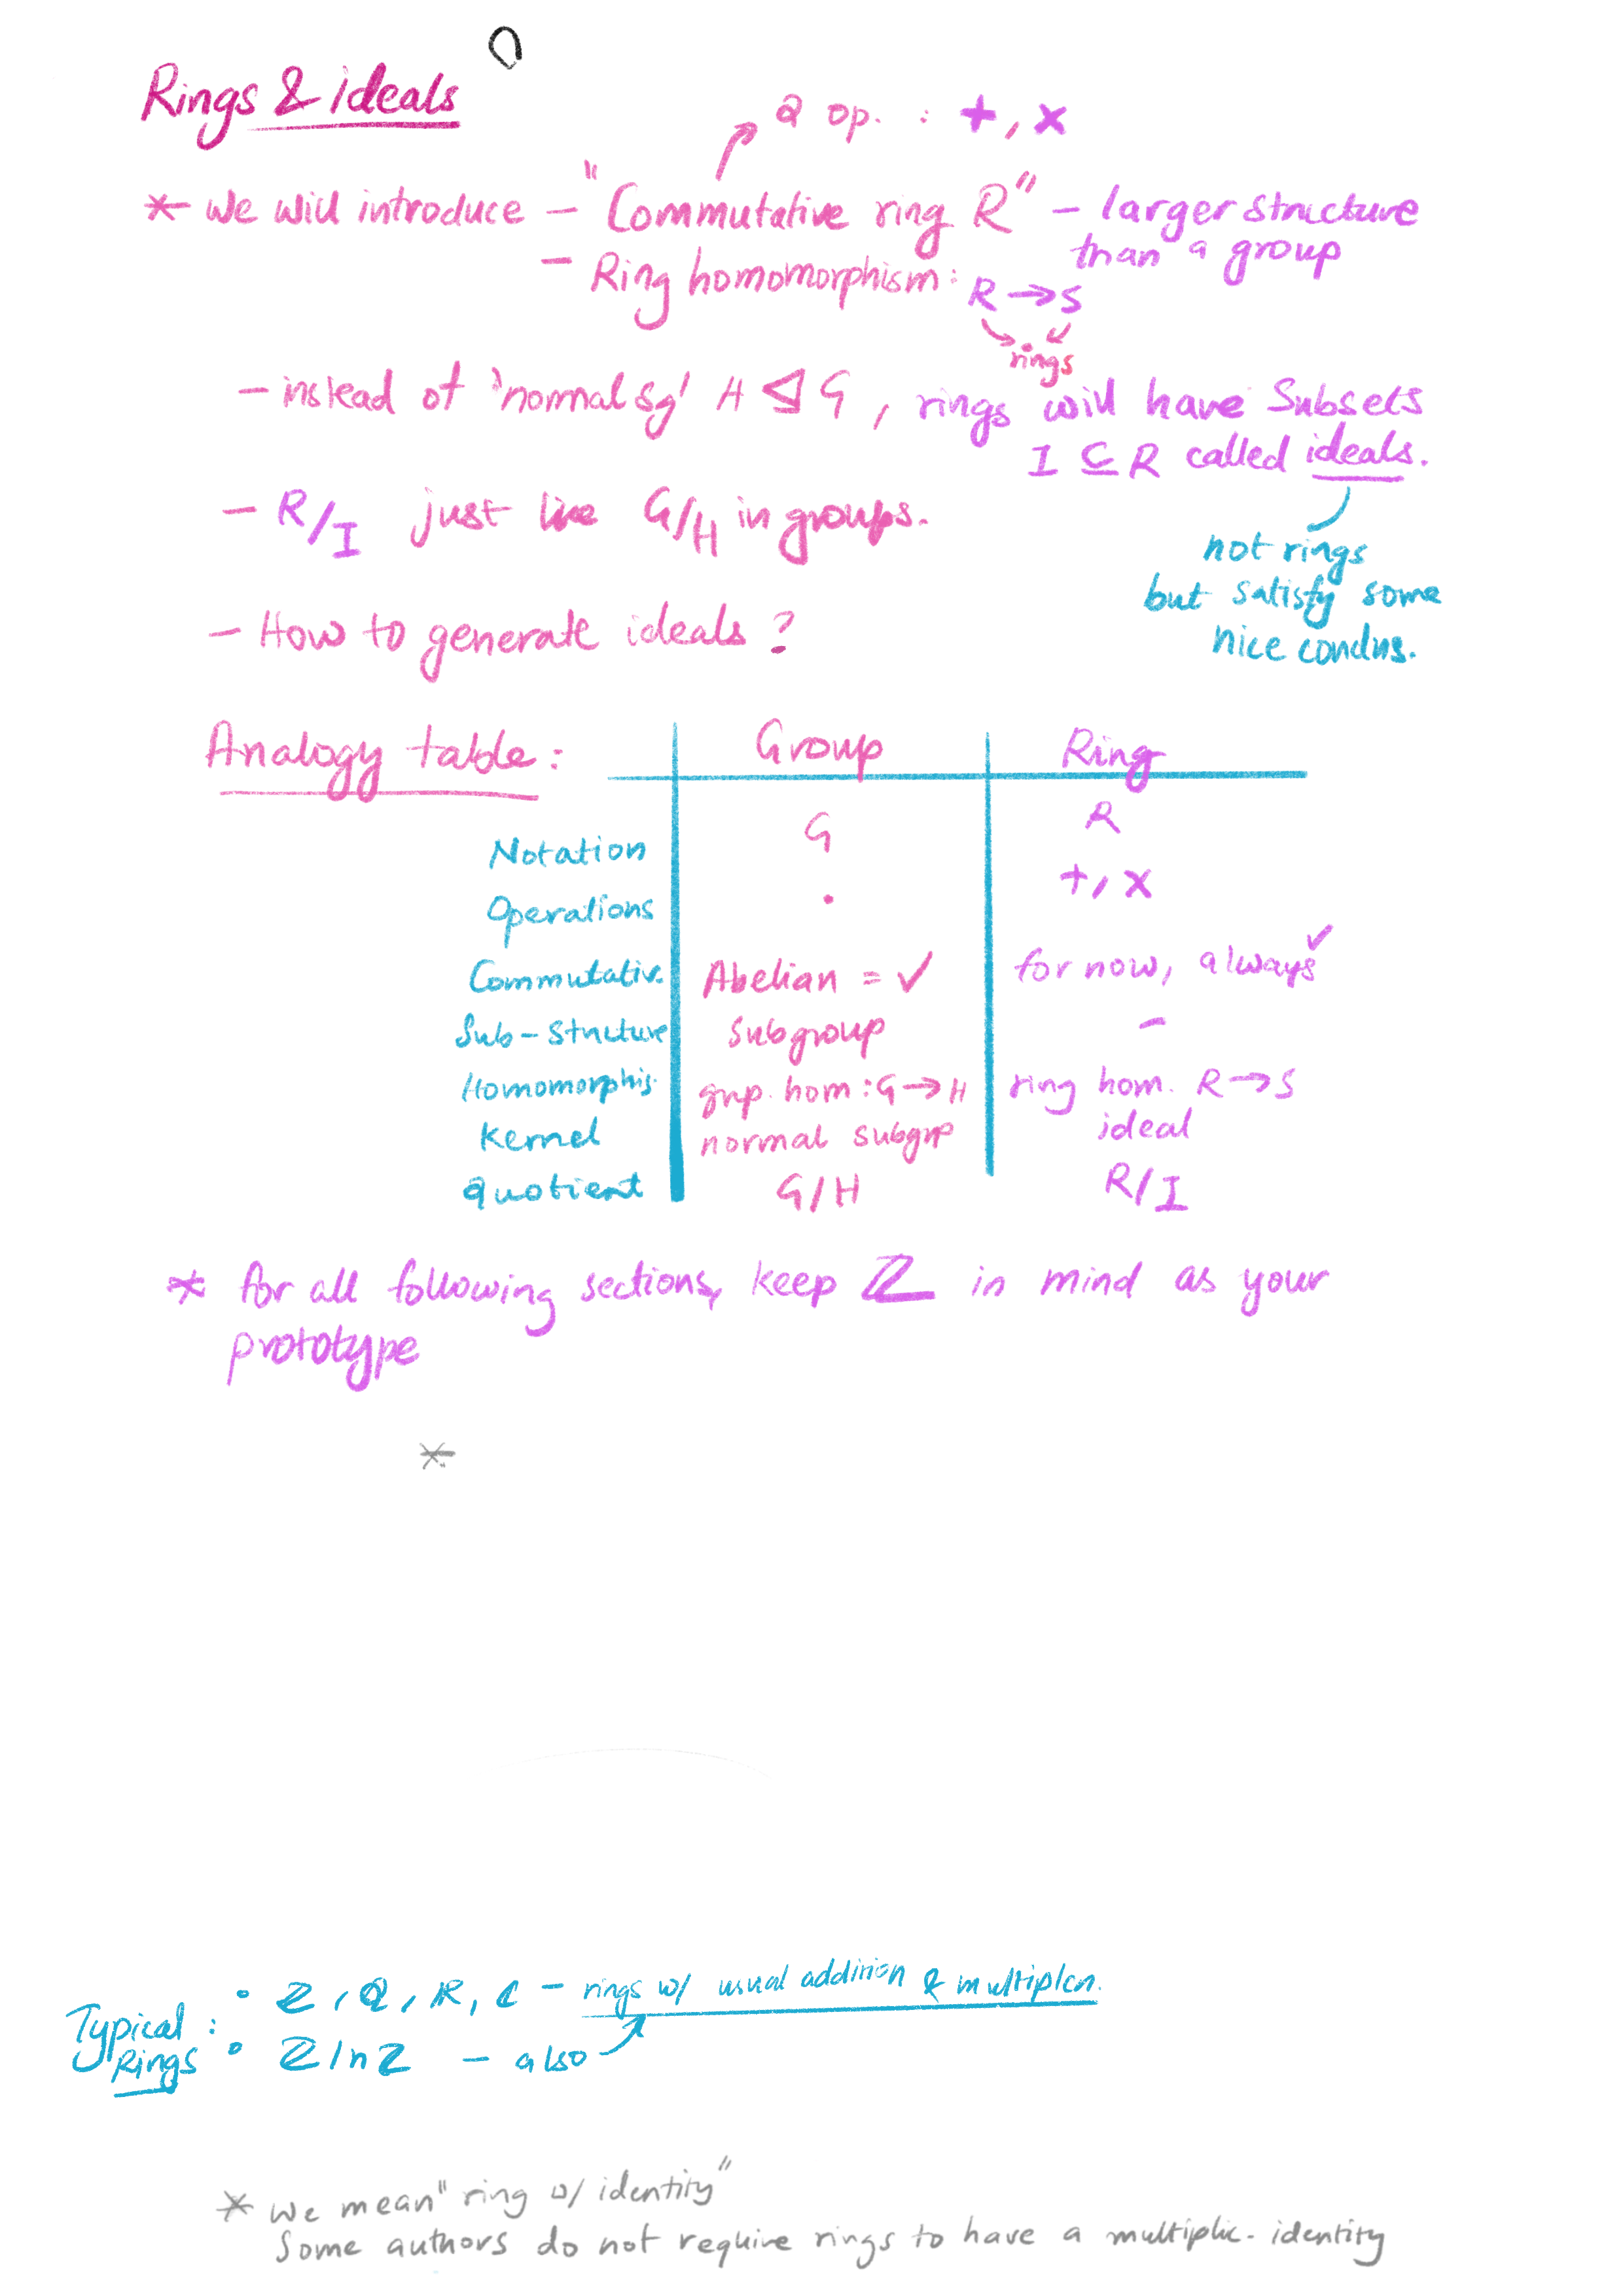 Rings & ideals
2 op. : +, ×
* we will introduce – "Commutative ring R" – larger structure
than a group
– Ring homomorphism: R → S
rings
– instead of 'normal sg' H ⊴ G, rings will have subsets
I ⊆ R called ideals.
– R/I just like G/H in groups.
not rings
but satisfy some
nice condns.
– How to generate ideals ?
Analogy table: Group Ring
Notation G R
Operations · +, ×
Commutativ. Abelian = ✓ for now, always ✓
Sub-structure subgroup –
Homomorphis. grp. hom: G → H ring hom. R → S
Kernel normal subgrp ideal
quotient G/H R/I
* for all following sections, keep ℤ in mind as your
prototype
*
Typical Rings :
• ℤ, ℚ, ℝ, ℂ – rings w/ usual addition & multiplcn.
• ℤ/nℤ – also
* we mean "ring w/ identity"
Some authors do not require rings to have a multiplic. identity